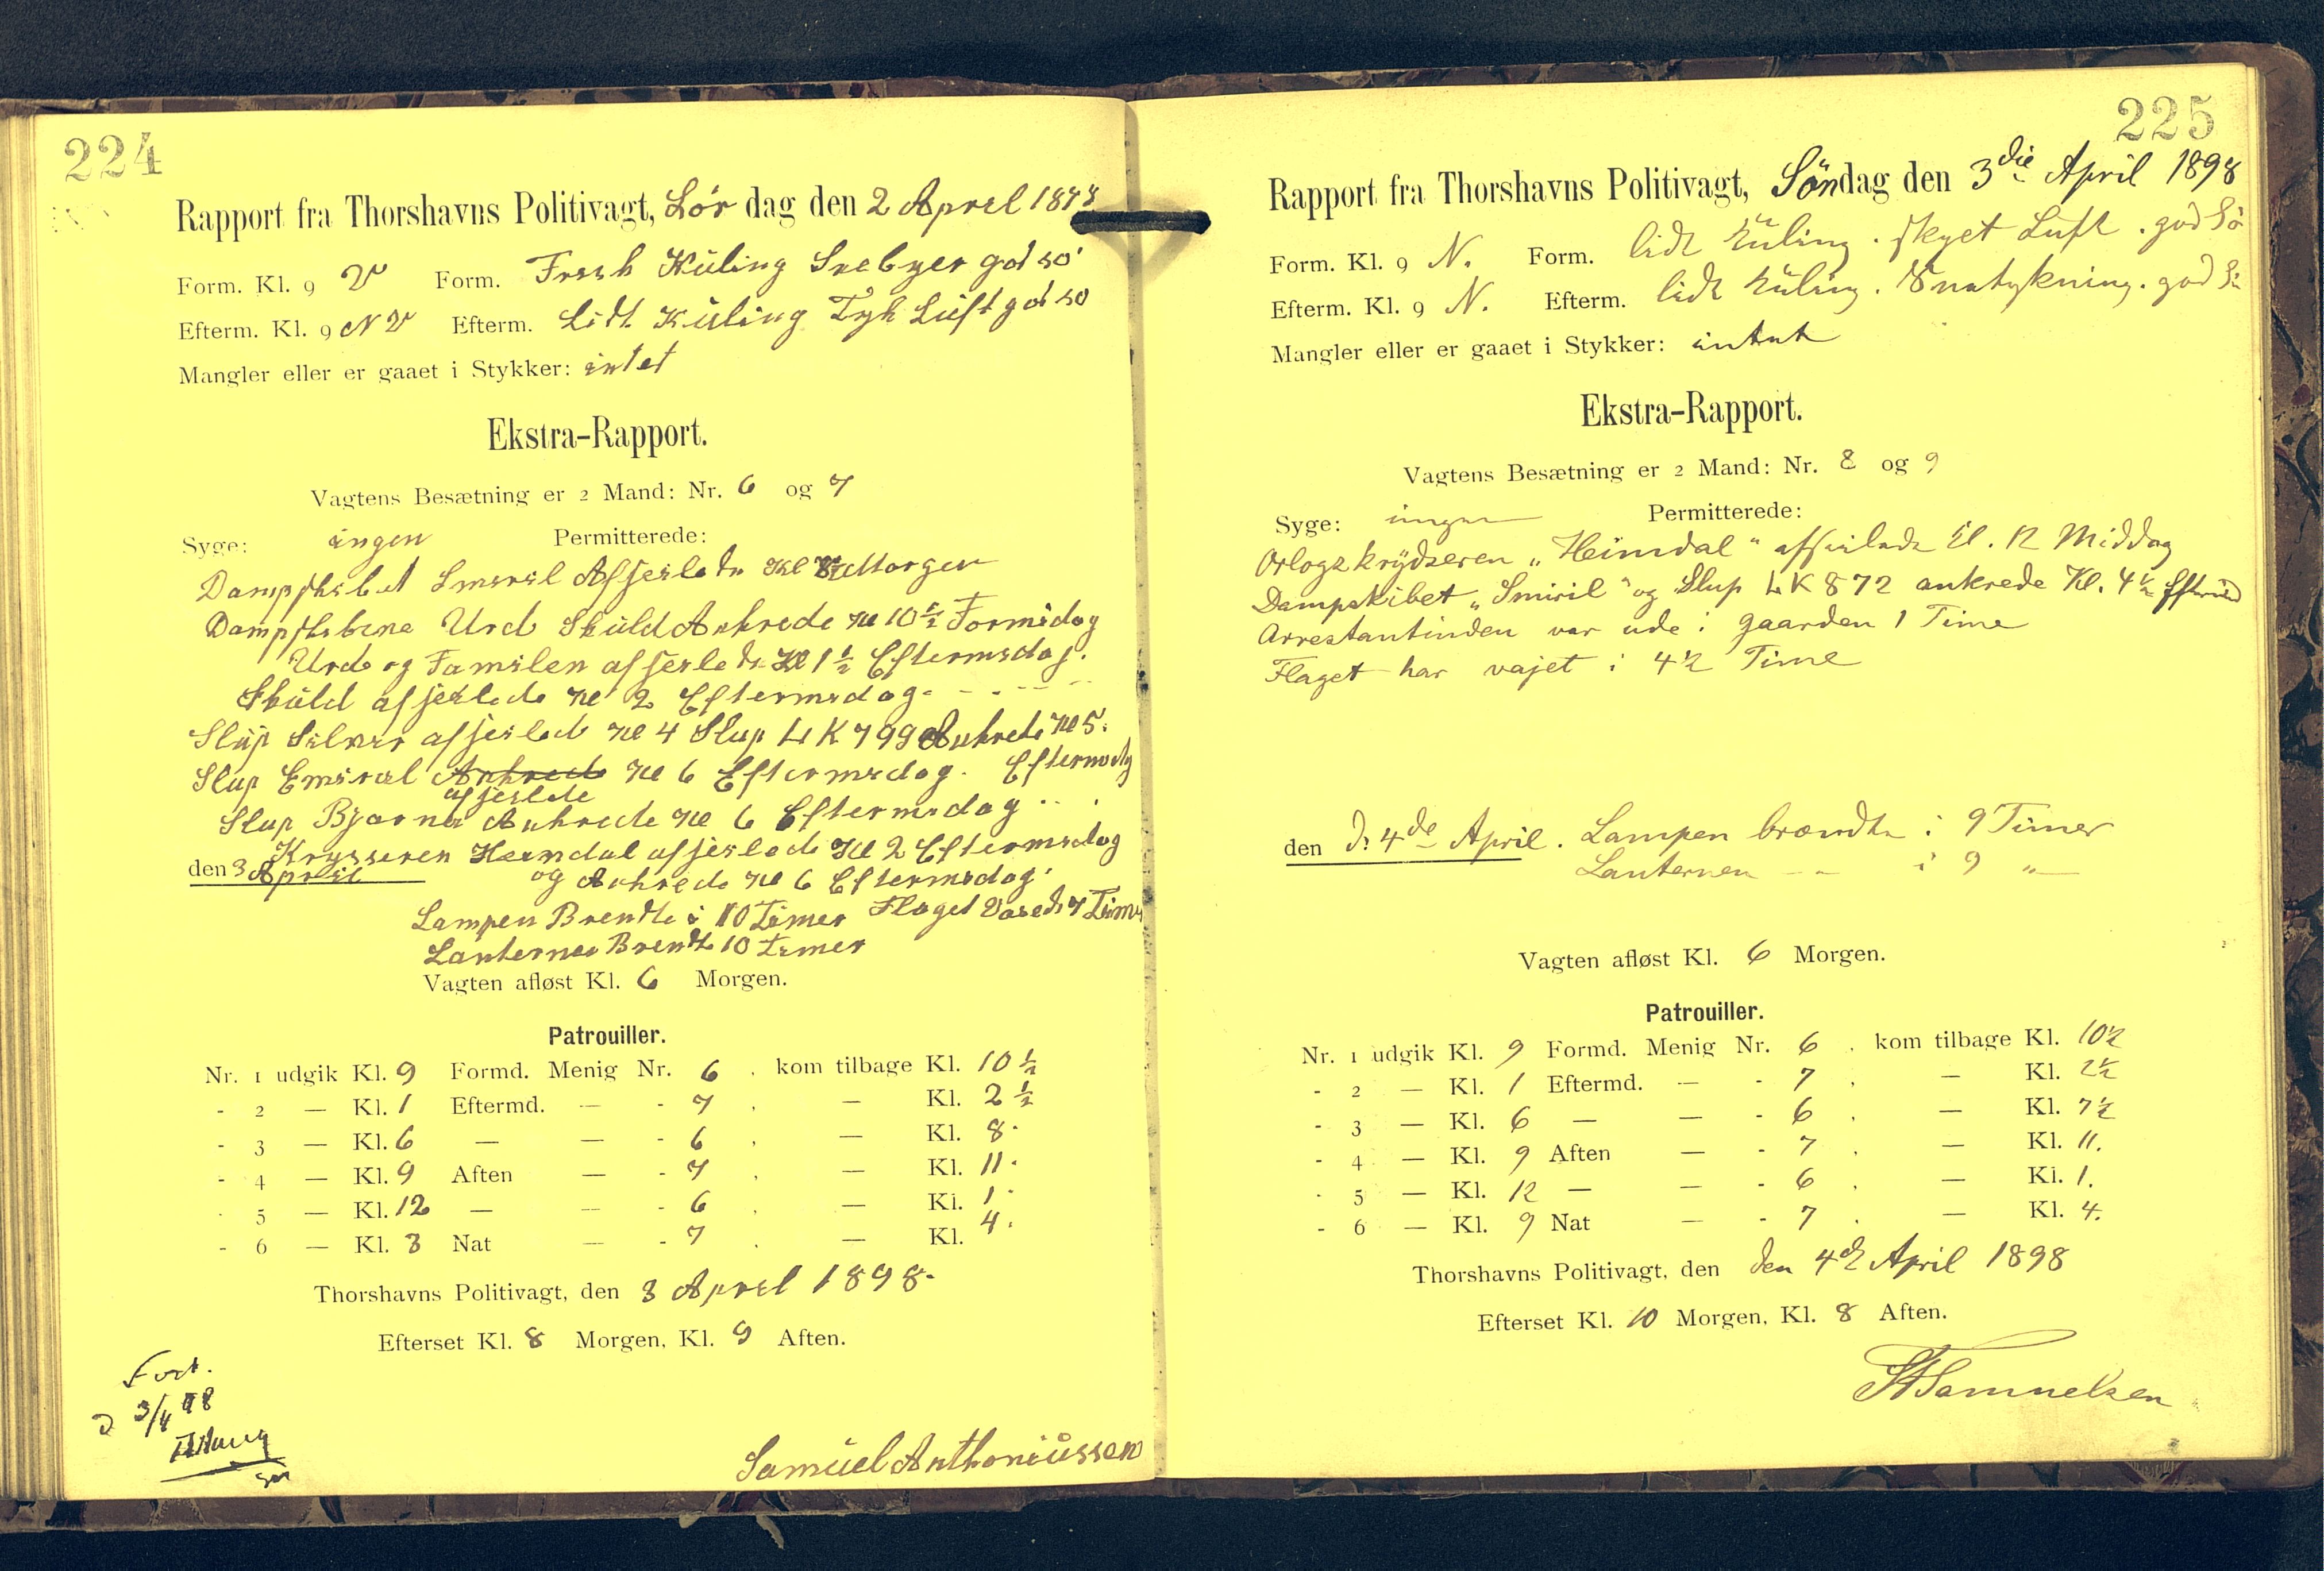 224
Rapport fra Thorshavns Politivagt, Lör dag den 2 April 1898
Form. Kl. 9 V Form. Fresh Küling Snebyer god sö
Efterm. Kl. 9 N V Efterm. Lidt Küling Tyk Lüft god sö
Mangler eller er gaaet i Stykker: intet
Ekstra-Rapport.
Vagtens Besætning er 2 Mand: Nr. 6 og 7
Syge: ingen Permitterede:
Dampskibet Smiril Afseilede Kl Morgen
Dampskibene Urd Sküld Ankrede Kl 10½ Formidag
Urd og Familen afseilede Kl 1½ Eftermidag.
Sküld afseilede Kl 2 Eftermidag.
Slüp afseilede Kl 4 Slup LK 799 Ankrede Kl 5.
Slup Emiral Ankrede Kl 6 Eftermidag. Eftermidag
afseilede
Slup Bjarna Ankrede Kl 6 Eftermidag
Krysseren Heimdal afseilede Kl 2 Eftermidag
den 3 April og Ankrede Kl 6 Eftermidag.
Lampen Brendte i 10 Timer Flaget Vaiede 7 Timer
Lanternen Brendte 10 Timer
Vagten afløst Kl. 6 Morgen.
Patrouiller.
Nr. 1 udgik Kl. 9 Formd. Menig Nr. 6 . kom tilbage Kl. 10½
- 2 — Kl. 1 Eftermd. — - 7 . — Kl. 2½
- 3 — Kl. 6 — — - 6 . — Kl. 8.
- 4 — Kl. 9 Aften — - 7 . — Kl. 11.
- 5 — Kl. 12 — — - 6 . — Kl. 1.
- 6 — Kl. 3 Nat — - 7 . — Kl. 4.
Thorshavns Politivagt, den 3 April 1898.
Efterset Kl. 8 Morgen, Kl. 9 Aften.
3/4 98
Samüel Anthoniüssen
225
Rapport fra Thorshavns Politivagt, Söndag den 3die April 1898
Form. Kl. 9 N. Form. lidt Küling. skyet Luft. god Sö
Efterm. Kl. 9 N. Efterm. lidt Küling. Snetykning. god Sö
Mangler eller er gaaet i Stykker: intet
Ekstra-Rapport.
Vagtens Besætning er 2 Mand: Nr. 8 og 9
Syge: ingen Permitterede:
Orlogskrydseren „Heimdal" afseilede Kl. 12 Middag
Dampskibet „Smiril" og Slup LK 872 ankrede Kl. 4½ Eftmd
Arrestantinden var ude i gaarden 1 Time
Flaget har vajet i 4½ Time
den d. 4de April. Lampen brændte i 9 Timer
Lanternen — — i 9 "
Vagten afløst Kl. 6 Morgen.
Patrouiller.
Nr. 1 udgik Kl. 9 Formd. Menig Nr. 6 . kom tilbage Kl. 10½
- 2 — Kl. 1 Eftermd. — - 7 . — Kl. 2½
- 3 — Kl. 6 — — - 6 . — Kl. 7½
- 4 — Kl. 9 Aften — - 7 . — Kl. 11.
- 5 — Kl. 12 — — - 6 . — Kl. 1.
- 6 — Kl. 9 Nat — - 7 . — Kl. 4.
Thorshavns Politivagt, den den 4de April 1898
Efterset Kl. 10 Morgen, Kl. 8 Aften.
Samuelsen